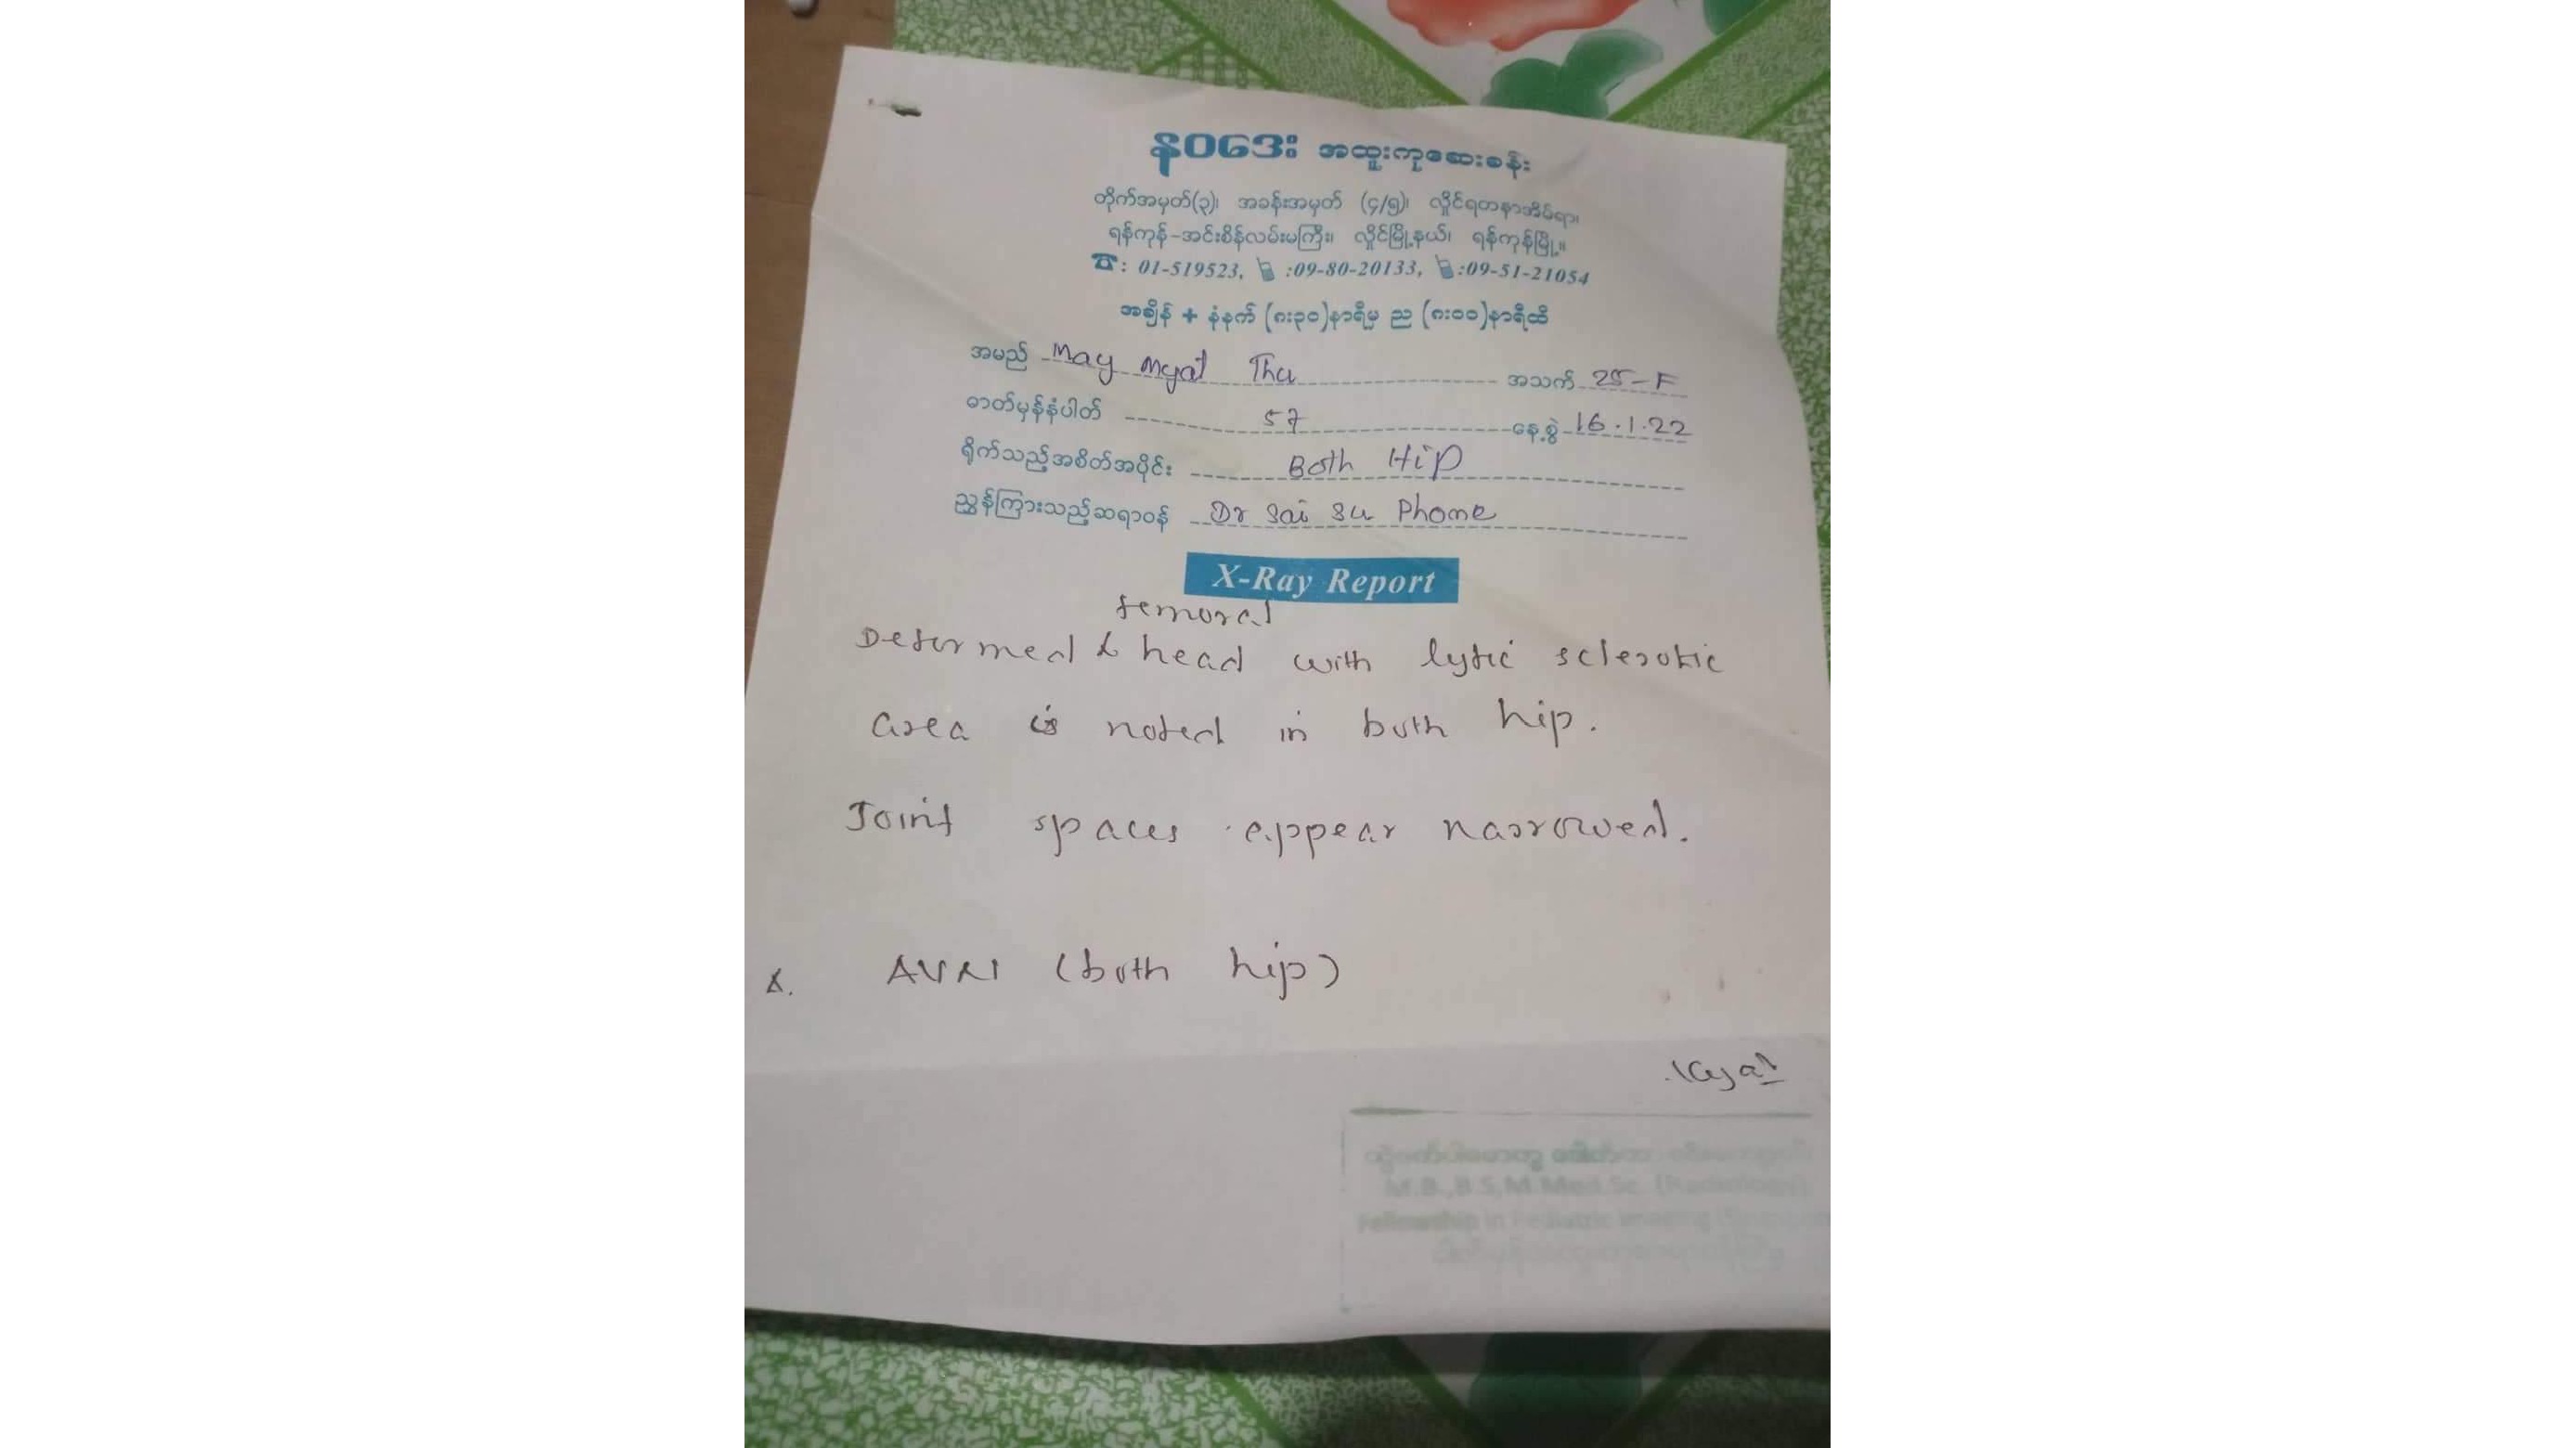 နဝဒေး အထူးကုဆေးခန်း
တိုက်အမှတ်(၃)၊ အခန်းအမှတ် (၄/၅)၊ လှိုင်ရတနာအိမ်ရာ၊
ရန်ကုန်-အင်းစိန်လမ်းမကြီး၊ လှိုင်မြို့နယ်၊ ရန်ကုန်မြို့။
☎: 01-519523, :09-80-20133, :09-51-21054
အချိန် + နံနက် (၈း၃၀)နာရီမှ ည (၈း၀၀)နာရီထိ
အမည် May Myat Thu အသက် 25-F
ဓာတ်မှန်နံပါတ် 57 နေ့စွဲ 16.1.22
ရိုက်သည့်အစိတ်အပိုင်း Both Hip
ညွှန်ကြားသည့်ဆရာဝန် Dr Sai Su Phone
X-Ray Report
femoral
Deformed head with lytic sclerotic
area is noted in both hip.
Joint spaces appear narrowed.
AVN (both hip)
M.B.,B.S,M.Med.Sc. (Radiology)
Fellowship in Pediatric Imaging